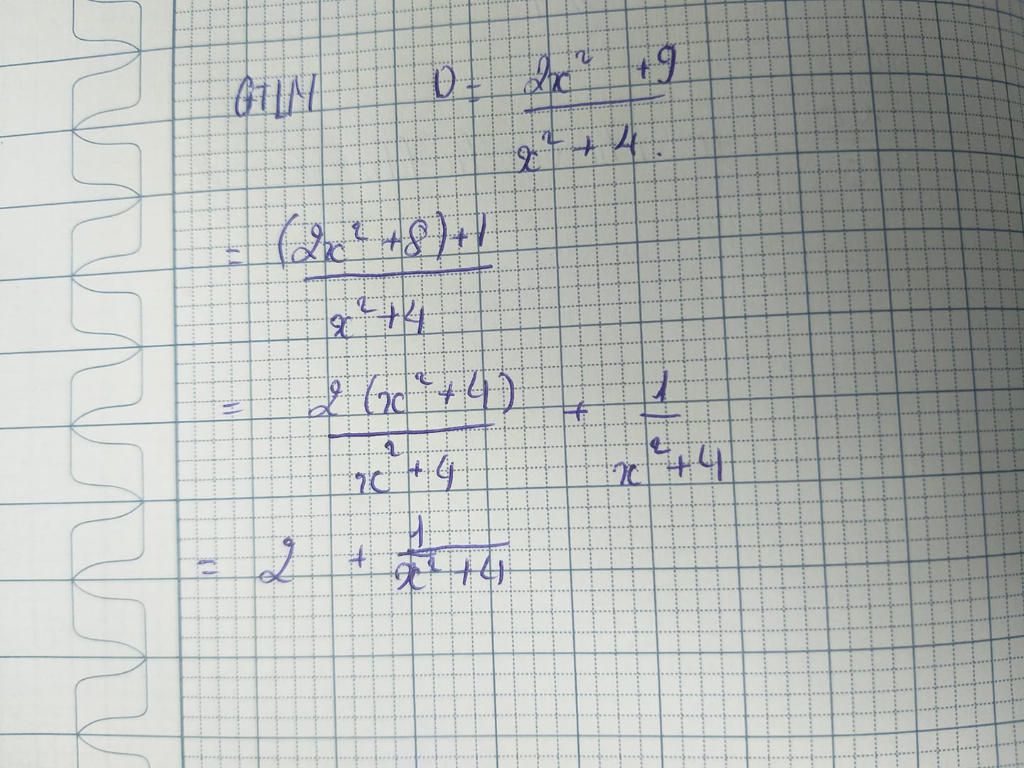 GTLN D = (2x² +9)/(x² + 4).
= ((2x² +8)+1)/(x²+4)
= (2 (x² +4))/(x² + 4) + 1/(x² +4)
= 2 + 1/(x² +4)